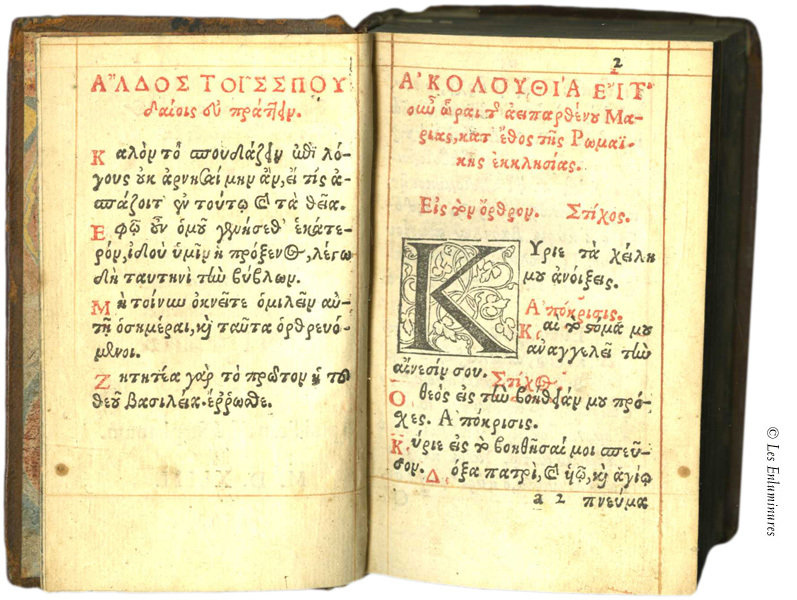 ΑʼΛΔΟΣ ΤΟΙΣ ΣΠΟΥ
δαίοις εὖ πράττειν.
Καλὸν τὸ σπουδάζειν ὡδὶ λό-
γους οὐκ ἀρνησαίμην ἄν, εἴ τίς ἀ-
σπάζοιτ' ἐν τούτῳ καὶ τὰ θεῖα.
Ἐφ' ᾧ οὖν ὁμοῦ γενήσεθ' ἑκάτε-
ρον, ἰδοὺ ὑμῖν ἡ πρόξενος, λέγω
δὴ ταυτηνὶ τῶν βύβλων.
Μὴ τοίνυν ὀκνεῖτε ὁμιλεῖν αὐ-
τῇ ὁσημέραι, καὶ ταῦτα ὀρθρευό-
μενοι.
Ζητητέα γὰρ τὸ πρῶτον ἡ τοῦ
θεοῦ βασιλεία. ἔρρωσθε.
2
ΑʼΚΟΛΟΥΘΙΑ ΕΙΣ
τὰς ὥρας τῆς ἀειπαρθένου Μα-
ρίας, κατ' ἔθος τῆς Ρωμαϊ-
κῆς ἐκκλησίας.
Εἰς τὸν ὄρθρον. Στίχος.
Κύριε τὰ χείλη
μου ἀνοίξεις.
Ἀπόκρισις.
Καὶ τὸ στόμα μου
ἀναγγελεῖ τὴν
αἴνεσίν σου. Στίχος.
Ὁ θεὸς εἰς τὴν βοήθειάν μου πρό-
σχες. Ἀπόκρισις.
Κύριε εἰς τὸ βοηθῆσαί μοι σπεῦ-
σον. Δόξα πατρὶ, καὶ υἱῷ, καὶ ἁγίῳ
a 2 πνεύμα
© Les Enluminures